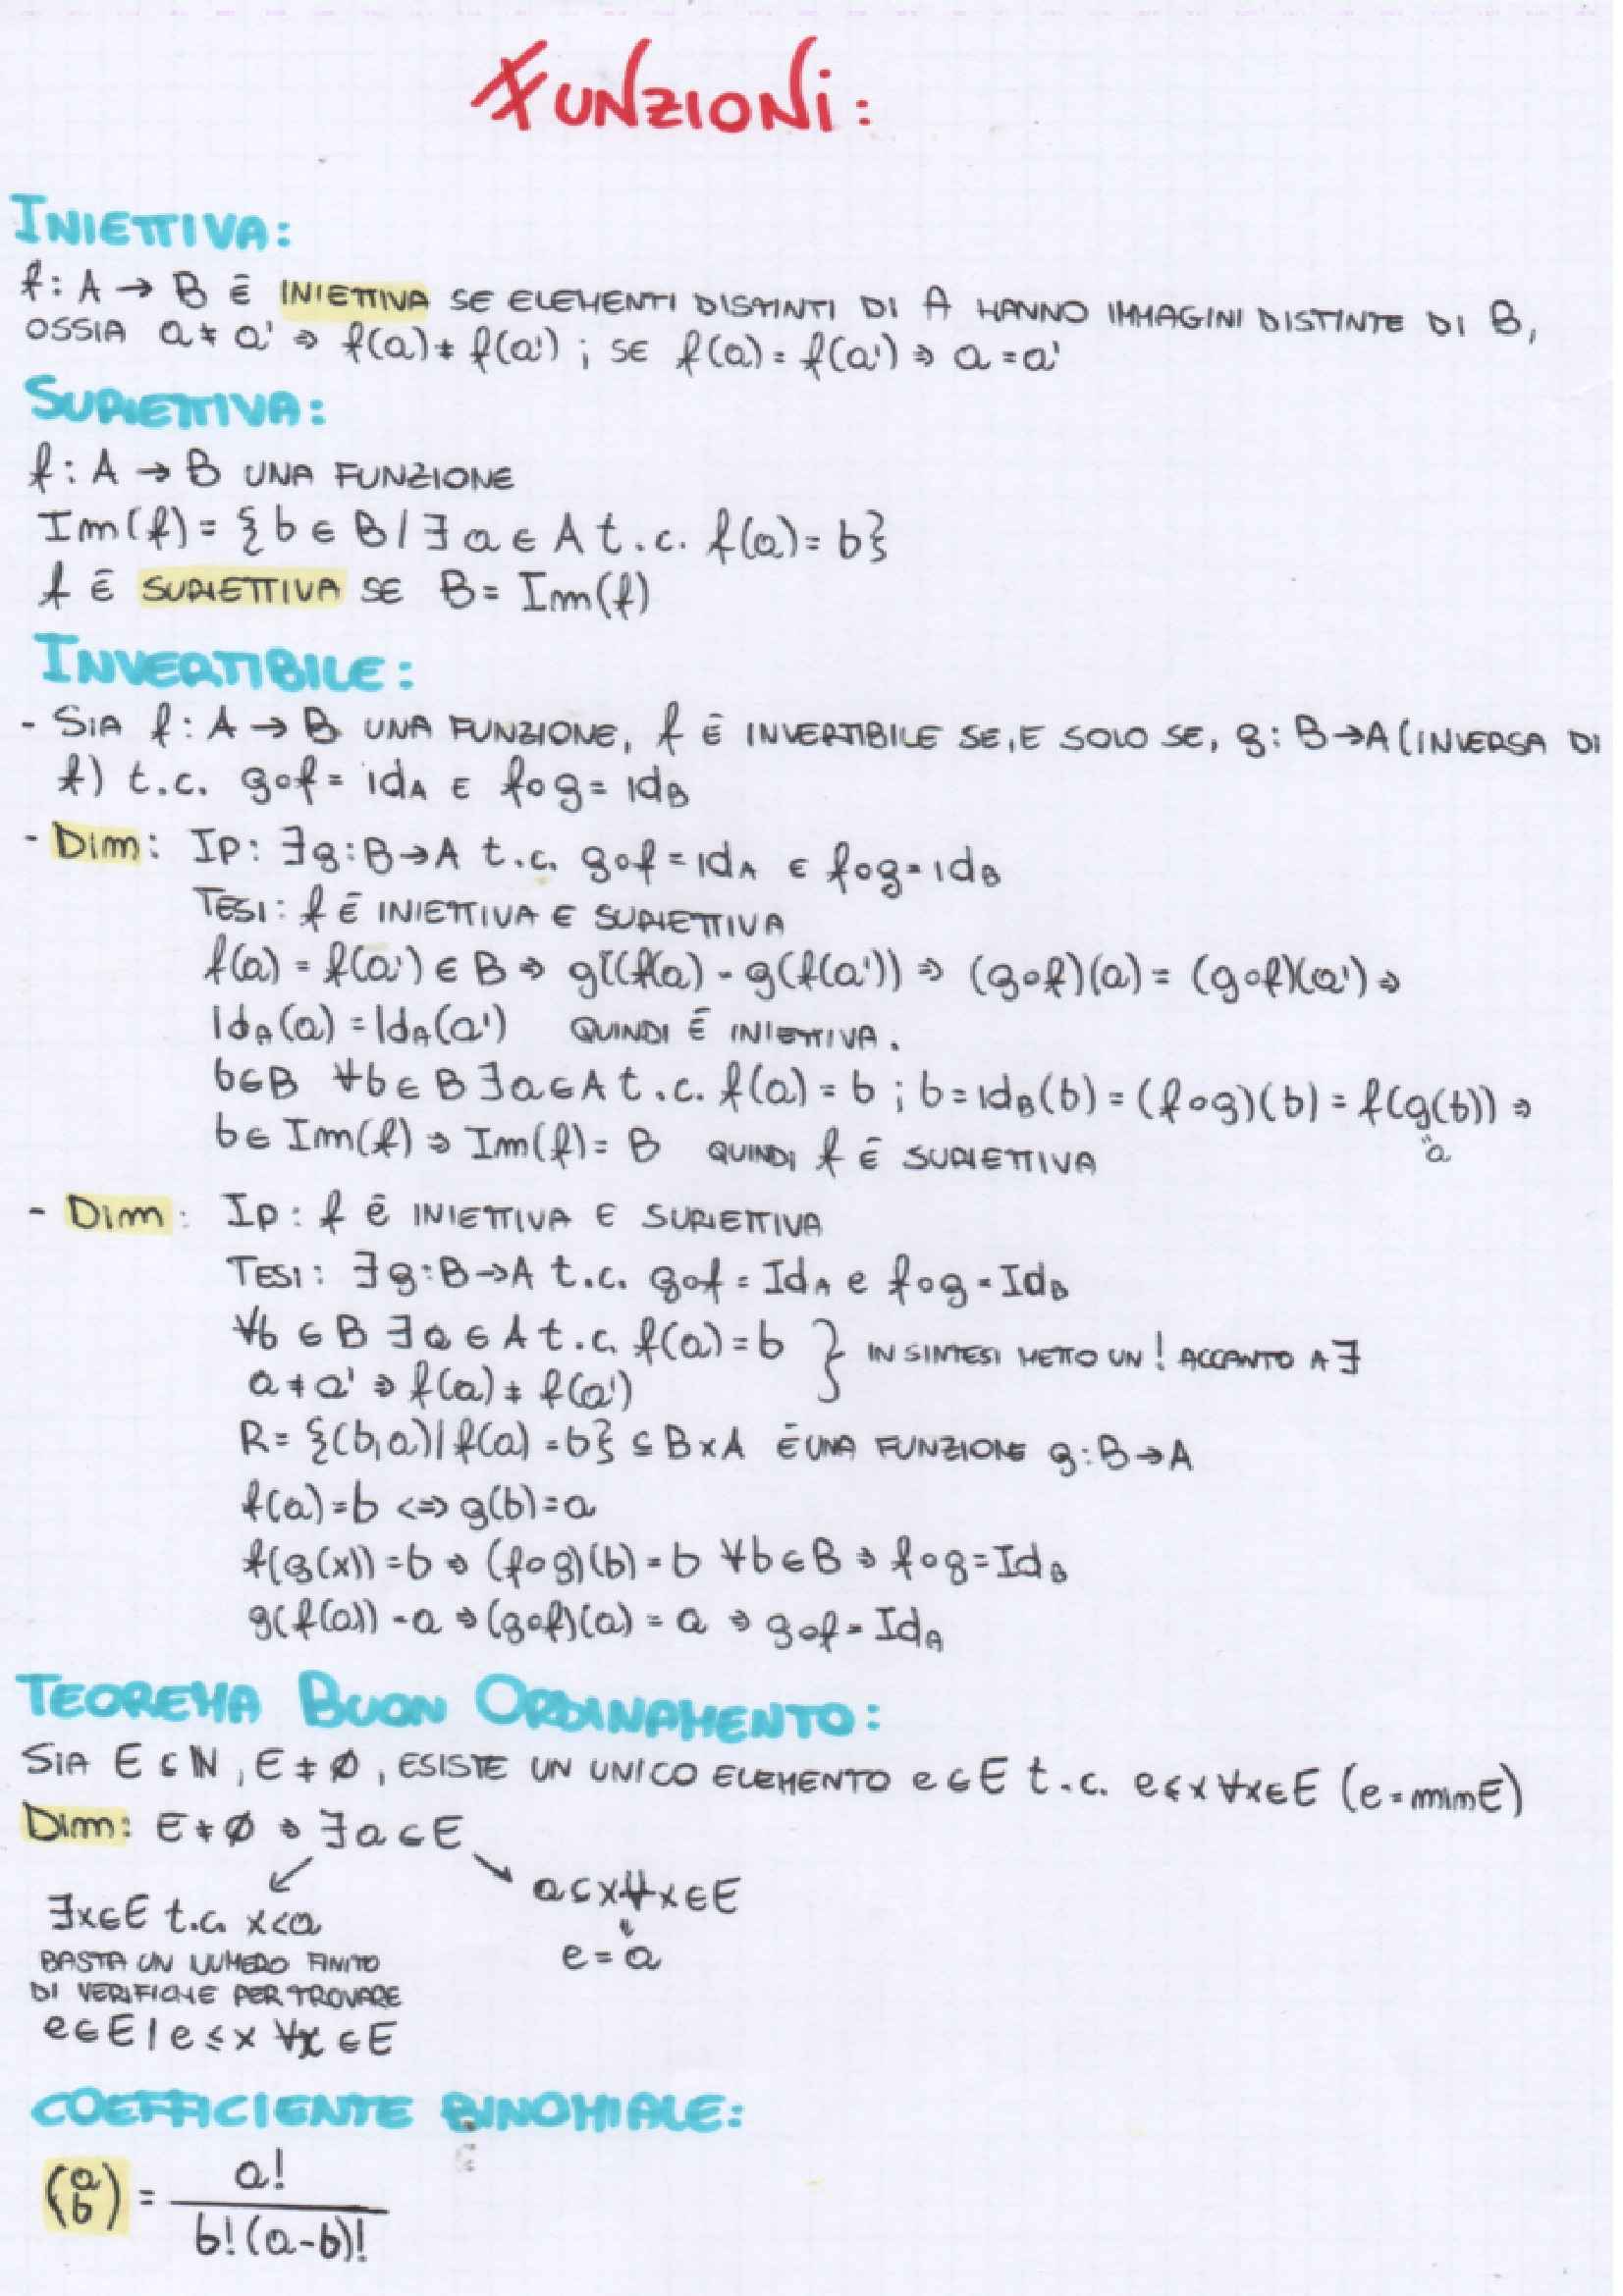 FUNZIONI:
INIETTIVA:
f: A → B È INIETTIVA SE ELEMENTI DISTINTI DI A HANNO IMMAGINI DISTINTE DI B,
OSSIA a ≠ a' ⇒ f(a) ≠ f(a') ; SE f(a) = f(a') ⇒ a = a'
SURIETTIVA:
f: A → B UNA FUNZIONE
Im(f) = {b ∈ B / ∃ a ∈ A t.c. f(a) = b}
f È SURIETTIVA SE B = Im(f)
INVERTIBILE:
- SIA f: A → B UNA FUNZIONE, f È INVERTIBILE SE, E SOLO SE, g: B → A (INVERSA DI
f) t.c. g∘f = id_A E f∘g = id_B
- Dim: Ip: ∃g: B → A t.c. g∘f = id_A E f∘g = id_B
TESI: f È INIETTIVA E SURIETTIVA
f(a) = f(a') ∈ B ⇒ g((f(a) = g(f(a')) ⇒ (g∘f)(a) = (g∘f)(a') ⇒
Id_A(a) = Id_A(a') QUINDI È INIETTIVA.
b∈B ∀b∈B ∃a∈A t.c. f(a) = b ; b = id_B(b) = (f∘g)(b) = f(g(b)) ⇒
" a
b ∈ Im(f) ⇒ Im(f) = B QUINDI f È SURIETTIVA
- Dim: Ip: f È INIETTIVA E SURIETTIVA
TESI: ∃g: B → A t.c. g∘f = Id_A e f∘g = Id_B
∀b ∈ B ∃a ∈ A t.c. f(a) = b } IN SINTESI METTO UN ! ACCANTO A ∃
a ≠ a' ⇒ f(a) ≠ f(a')
R = {(b,a) | f(a) = b} ⊆ B×A È UNA FUNZIONE g: B → A
f(a) = b <=> g(b) = a
f(g(x)) = b ⇒ (f∘g)(b) = b ∀b∈B ⇒ f∘g = Id_B
g(f(a)) = a ⇒ (g∘f)(a) = a ⇒ g∘f = Id_A
TEOREMA BUON ORDINAMENTO:
SIA E ⊆ ℕ, E ≠ ∅, ESISTE UN UNICO ELEMENTO e∈E t.c. e≤x ∀x∈E (e = min E)
Dim: E ≠ ∅ ⇒ ∃a∈E
↙ ↘
a≤x ∀x∈E
"
e = a
∃x∈E t.c. x<a
BASTA UN NUMERO FINITO
DI VERIFICHE PER TROVARE
e∈E | e ≤ x ∀x ∈ E
COEFFICIENTE BINOMIALE:
(a b) = a! / b!(a-b)!